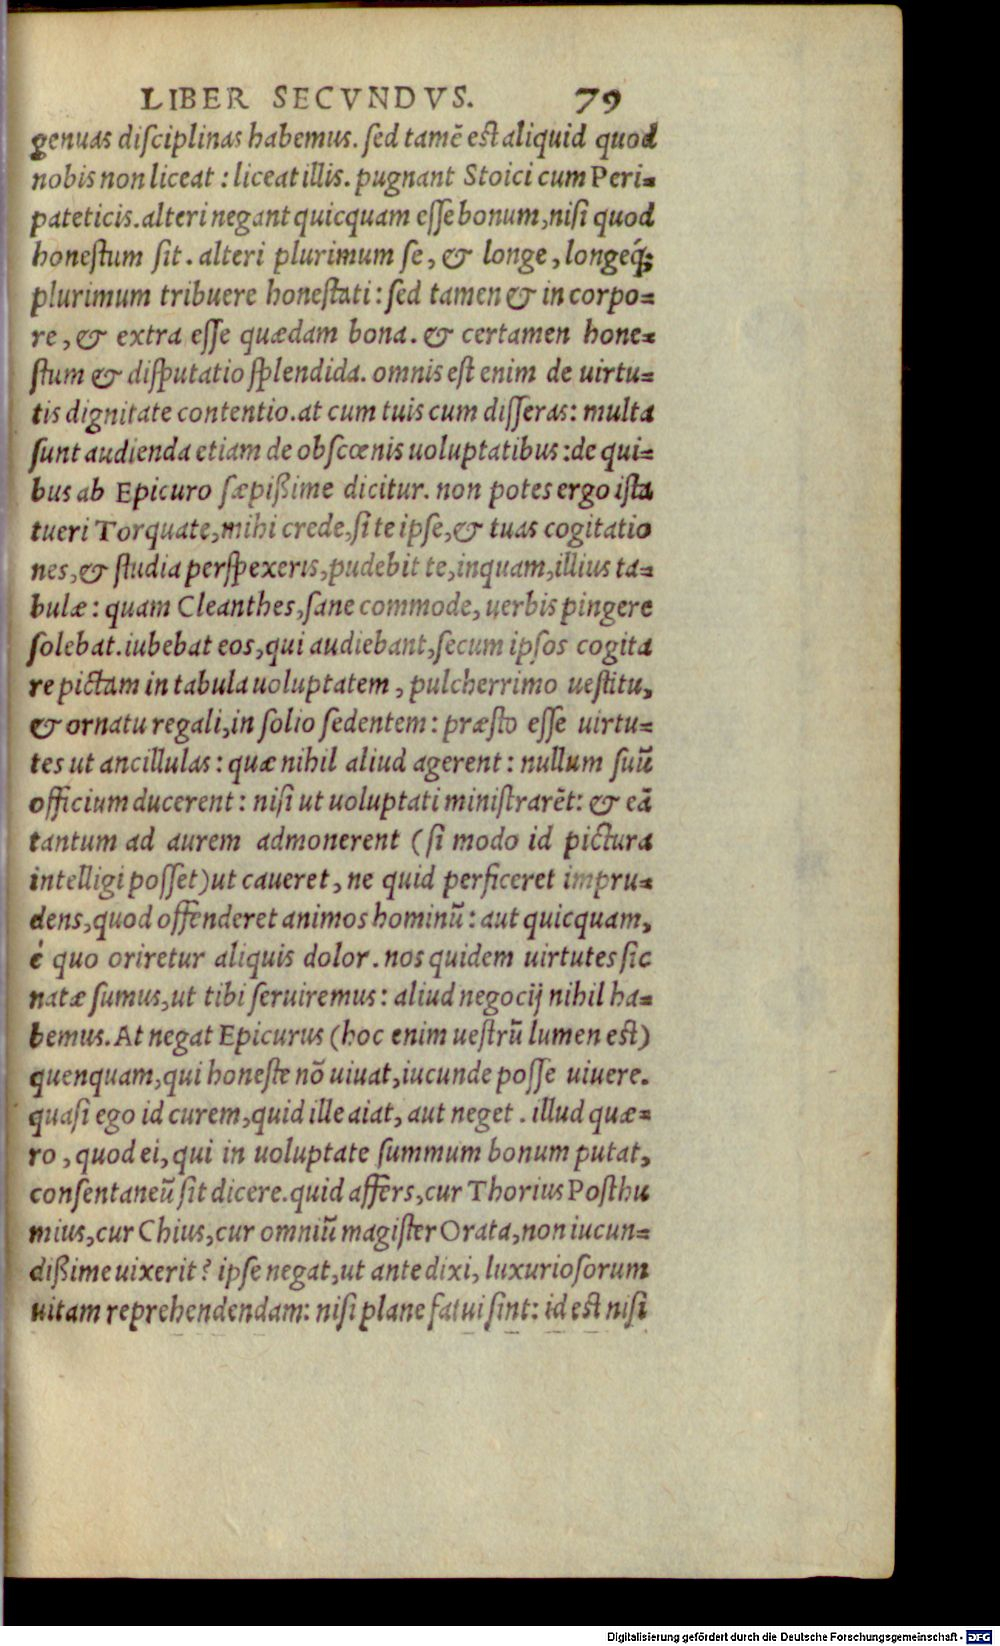 LIBER SECVNDVS. 79
genuas diſciplinas habemus. ſed tamē est aliquid quod
nobis non liceat : liceat illis. pugnant Stoici cum Peri-
pateticis. alteri negant quicquam eſſe bonum, niſi quod
honeſtum ſit. alteri plurimum ſe, & longe, longeq́;
plurimum tribuere honeſtati: ſed tamen & in corpo-
re, & extra eſſe quædam bona. & certamen hone-
ſtum & diſputatio ſplendida. omnis eſt enim de uirtu-
tis dignitate contentio. at cum tuis cum diſſeras: multa
ſunt audienda etiam de obſcœnis uoluptatibus: de qui-
bus ab Epicuro ſæpißime dicitur. non potes ergo iſta
tueri Torquate, mihi crede, ſi te ipſe, & tuas cogitatio
nes, & ſtudia perſpexeris, pudebit te, inquam, illius ta-
bulæ: quam Cleanthes, ſane commode, uerbis pingere
ſolebat. iubebat eos, qui audiebant, ſecum ipſos cogita
re pictam in tabula uoluptatem, pulcherrimo ueſtitu,
& ornatu regali, in ſolio ſedentem: præſto eſſe uirtu-
tes ut ancillulas: quæ nihil aliud agerent: nullum ſuū
officium ducerent: niſi ut uoluptati miniſtrarēt: & eā
tantum ad aurem admonerent (ſi modo id pictura
intelligi poſſet) ut caueret, ne quid perficeret impru-
dens, quod offenderet animos hominū: aut quicquam,
é quo oriretur aliquis dolor. nos quidem uirtutes ſic
natæ ſumus, ut tibi ſeruiremus: aliud negocij nihil ha-
bemus. At negat Epicurus (hoc enim ueſtrū lumen est)
quenquam, qui honeſte nō uiuat, iucunde poſſe uiuere.
quaſi ego id curem, quid ille aiat, aut neget. illud quæ-
ro, quod ei, qui in uoluptate ſummum bonum putat,
conſentaneū ſit dicere. quid affers, cur Thorius Poſthu
mius, cur Chius, cur omniū magiſter Orata, non iucun-
dißime uixerit? ipſe negat, ut ante dixi, luxurioſorum
uitam reprehendendam: niſi plane fatui ſint: id est niſi
Digitalisierung gefördert durch die Deutsche Forschungsgemeinschaft - DFG